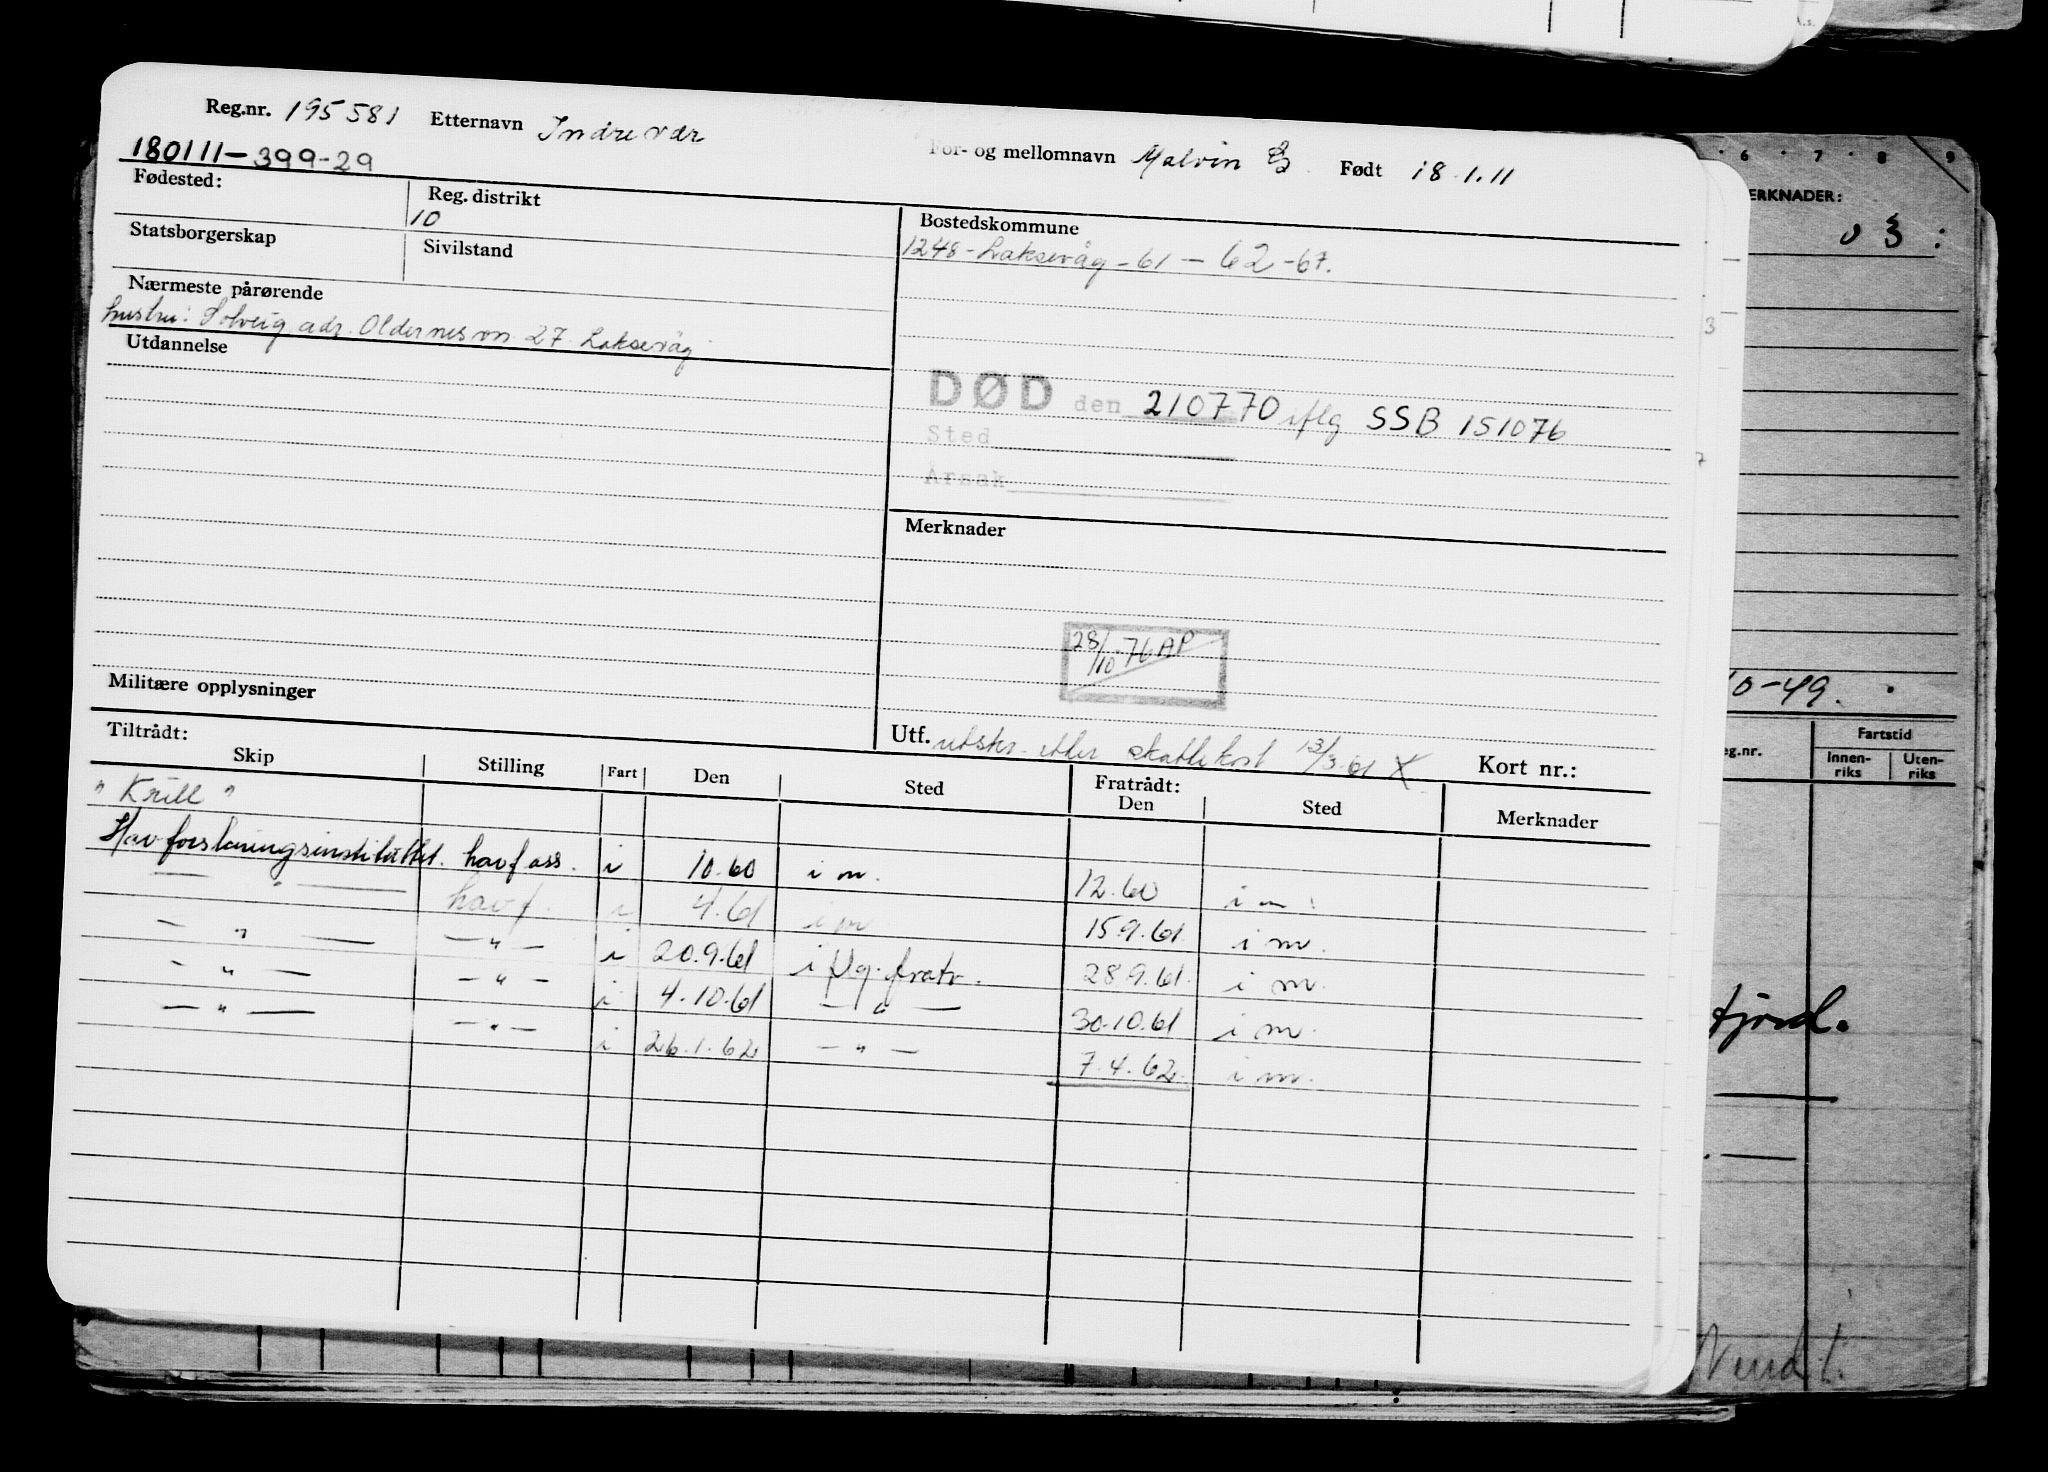 Reg.nr. 195581 Etternavn Indrevær For- og mellomnavn Malvin Født 18.1.11
180111-399-29
Fødested: Reg. distrikt
10
Statsborgerskap Sivilstand
Nærmeste pårørende
hustru: Solveig adr. Oldernesvn. 27 Laksevåg
Utdannelse
Militære opplysninger
Bostedskommune
1248-Laksevåg-61-62-67.
DØD den 210770 iflg SSB 151076
Sted
Årsak
Merknader
28/10-76 AP
Utf. utskr. etter skattekort 13/3-61 X Kort nr.:
Tiltrådt: Fratrådt:
Skip Stilling Fart Den Sted Den Sted Merknader
"Krill"
Havforskningsinstituttet. havf ass. i 10.60 i m. 12.60 i m.
— " — havf. i 4.61 i m 15.9.61 i m.
— " — — " — i 20.9.61 i flg. fratr. 28.9.61 i m.
— " — — " — i 4.10.61 — " — 30.10.61 i m.
— " — — " — i 26.1.62 — " — 7.4.62 i m.
6 7 8 9
ERKNADER:
03:
10-49.
eg.nr. Fartstid
Innen-riks Uten-riks
fjord.
3
7
A.s.